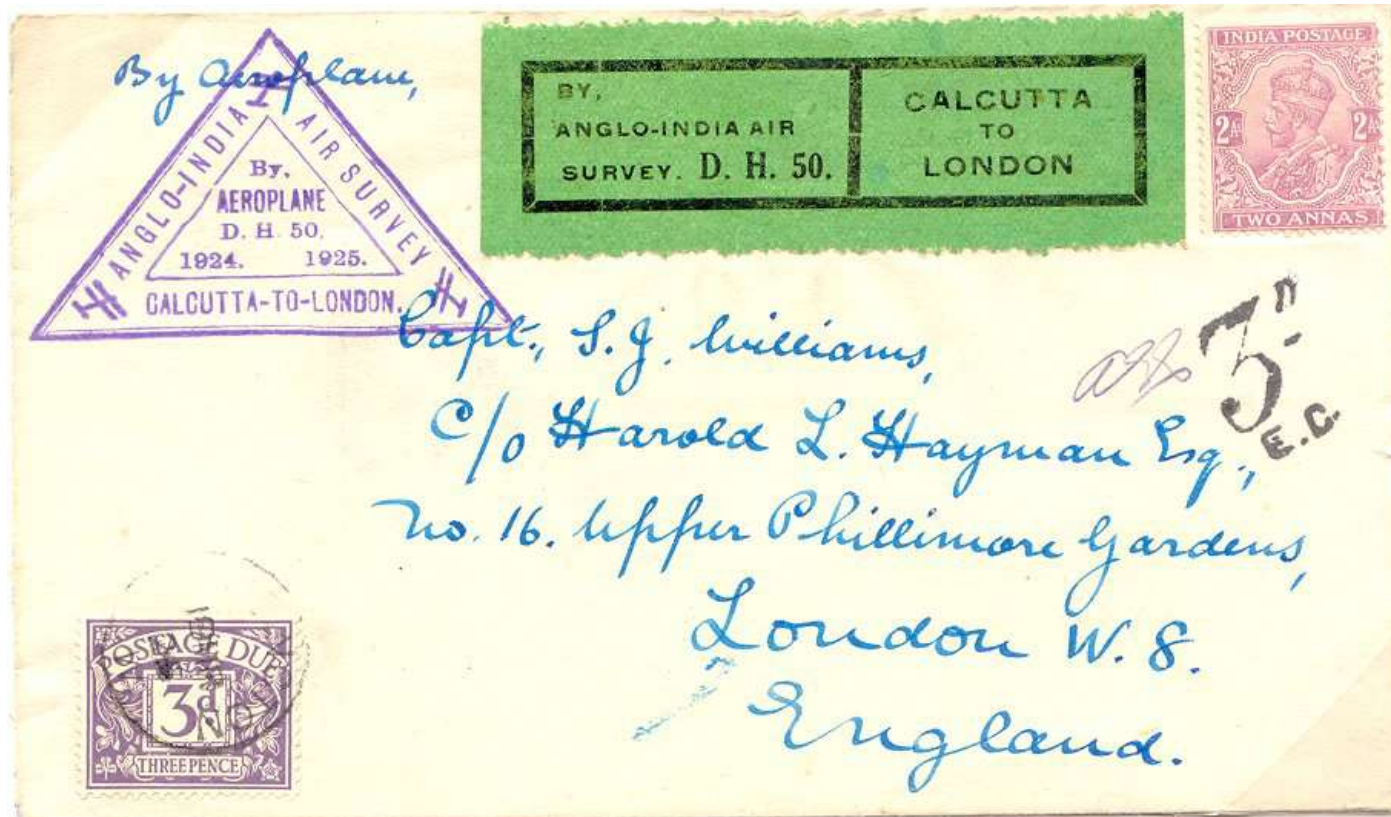 By Aeroplane,
ANGLO-INDIA AIR SURVEY
By,
AEROPLANE
D. H. 50.
1924. 1925.
CALCUTTA-TO-LONDON.
BY,
ANGLO-INDIA AIR
SURVEY. D. H. 50.
CALCUTTA
TO
LONDON
INDIA POSTAGE
2 As 2 As
TWO ANNAS
3D
E.C.
Capt., S. J. Williams,
C/o Harold L. Hayman Esq.,
No. 16. Upper Phillimore Gardens,
London W. 8.
England.
POSTAGE DUE
3d
THREE PENCE